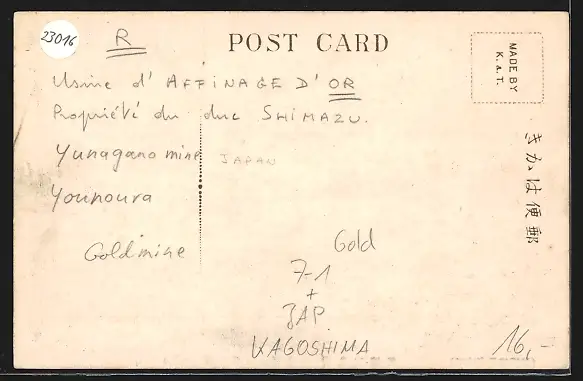 23016
R
POST CARD
MADE BY
K. & T.
Usine d' AFFINAGE D' OR
Propriété du duc SHIMAZU.
Yunagano mine
JAPAN
Younoura
Goldmine
Gold
7-1
+
JAP
KAGOSHIMA
16,-
きかは便郵